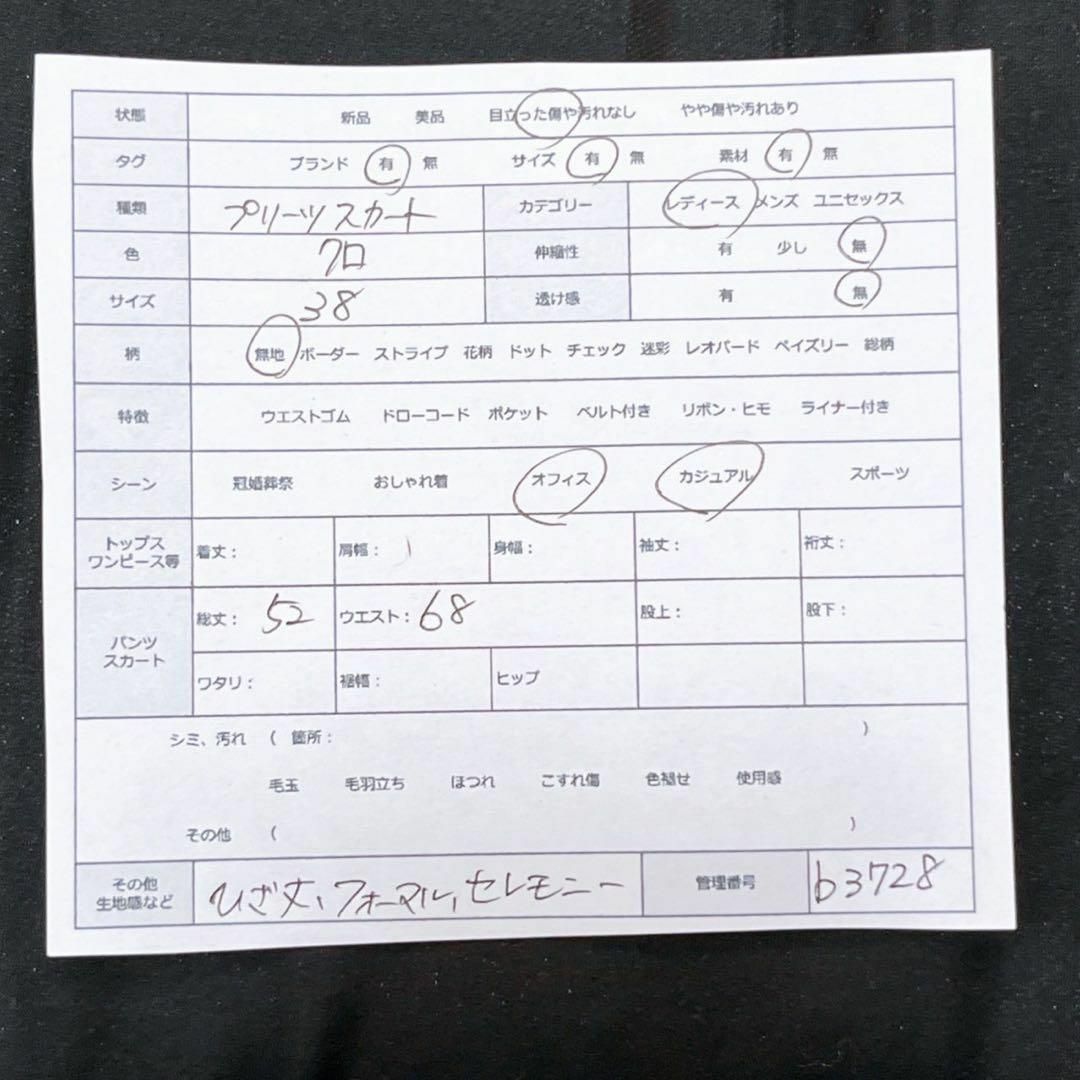 状態 新品 美品 目立った傷や汚れなし やや傷や汚れあり
タグ ブランド 有 無 サイズ 有 無 素材 有 無
種類 プリーツスカート カテゴリー レディース メンズ ユニセックス
色 クロ 伸縮性 有 少し 無
サイズ 38 透け感 有 無
柄 無地 ボーダー ストライプ 花柄 ドット チェック 迷彩 レオパード ペイズリー 総柄
特徴 ウエストゴム ドローコード ポケット ベルト付き リボン・ヒモ ライナー付き
シーン 冠婚葬祭 おしゃれ着 オフィス カジュアル スポーツ
トップス
ワンピース等 着丈: 肩幅: 身幅: 袖丈: 裄丈:
パンツ
スカート
総丈: 52 ウエスト: 68 股上: 股下:
ワタリ: 裾幅: ヒップ
シミ、汚れ ( 箇所: )
毛玉 毛羽立ち ほつれ こすれ傷 色褪せ 使用感
その他 ( )
その他
生地感など ひざ丈、フォーマル、セレモニー 管理番号 b3728